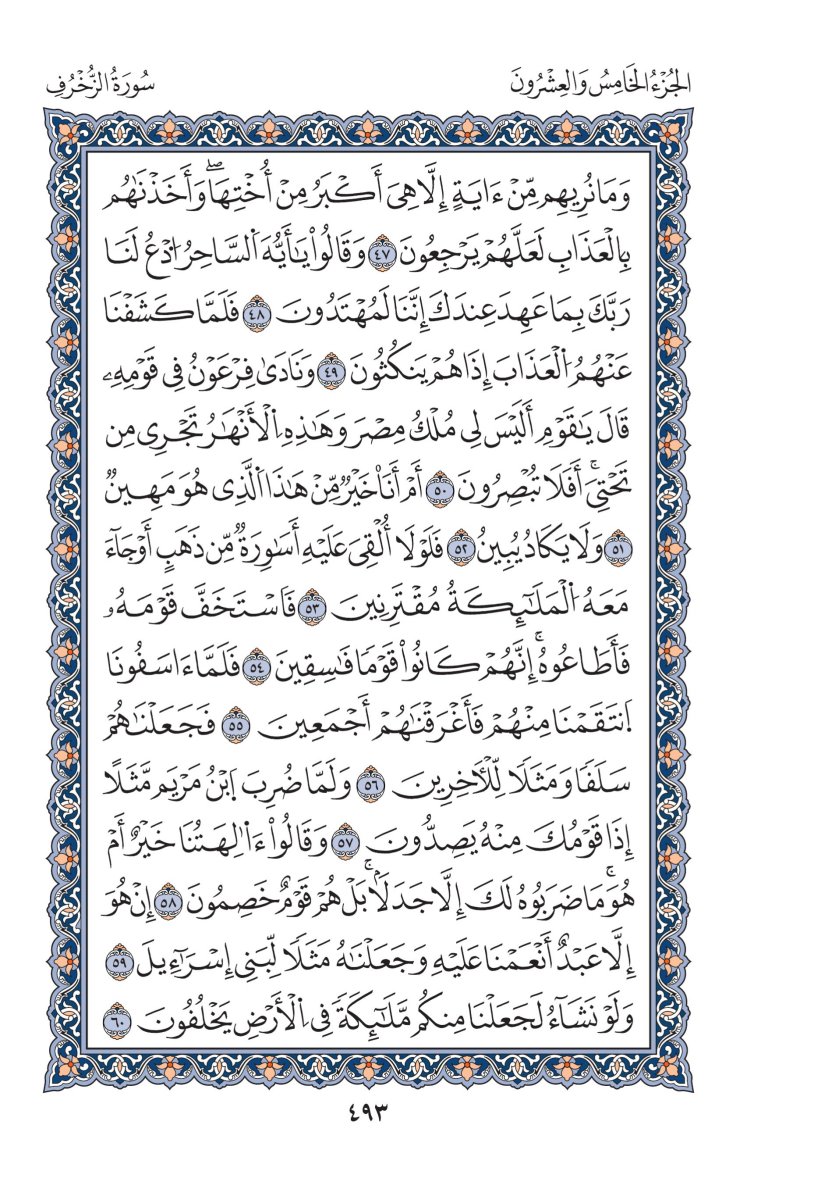 الجُزْءُ الخَامِسُ وَالعِشْرُونَ
سُورَةُ الزُّخْرُفِ
وَمَا نُرِيهِم مِّنْ ءَايَةٍ إِلَّا هِىَ أَكْبَرُ مِنْ أُخْتِهَاۖ وَأَخَذْنَٰهُم
بِالْعَذَابِ لَعَلَّهُمْ يَرْجِعُونَ ٤٧ وَقَالُوا۟ يَٰٓأَيُّهَ اَ۬لسَّاحِرُ اُ۟دْعُ لَنَا
رَبَّكَ بِمَا عَهِدَ عِندَكَ إِنَّنَا لَمُهْتَدُونَ ٤٨ فَلَمَّا كَشَفْنَا
عَنْهُمُ اُ۬لْعَذَابَ إِذَا هُمْ يَنكُثُونَ ٤٩ وَنَادَىٰ فِرْعَوْنُ فِى قَوْمِهِۦ
قَالَ يَٰقَوْمِ أَلَيْسَ لِى مُلْكُ مِصْرَ وَهَٰذِهِ اِ۬لْأَنْهَٰرُ تَجْرِى مِن
تَحْتِىٓۚ أَفَلَا تُبْصِرُونَ ٥٠ أَمْ أَنَا۠ خَيْرٌ مِّنْ هَٰذَا اَ۬لَّذِى هُوَ مَهِينٌ
٥١ وَلَا يَكَادُ يُبِينُ ٥٢ فَلَوْلَا أُلْقِىَ عَلَيْهِ أَسَٰوِرَةٌ مِّن ذَهَبٍ أَوْ جَآءَ
مَعَهُ اُ۬لْمَلَٰٓئِكَةُ مُقْتَرِنِينَ ٥٣ فَاسْتَخَفَّ قَوْمَهُۥ
فَأَطَاعُوهُۚ إِنَّهُمْ كَانُوا۟ قَوْمًا فَٰسِقِينَ ٥٤ فَلَمَّآ ءَاسَفُونَا
اَ۪نتَقَمْنَا مِنْهُمْ فَأَغْرَقْنَٰهُمْ أَجْمَعِينَ ٥٥ فَجَعَلْنَٰهُمْ
سَلَفًا وَمَثَلًا لِّلْأٓخِرِينَ ٥٦ وَلَمَّا ضُرِبَ اَ۪بْنُ مَرْيَم مَّثَلًا
إِذَا قَوْمُكَ مِنْهُ يَصِدُّونَ ٥٧ وَقَالُوا۟ ءَاٰ۬لِهَتُنَا خَيْرٌ أَمْ
هُوَۚ مَا ضَرَبُوهُ لَكَ إِلَّا جَدَلَۢاۚ بَلْ هُمْ قَوْمٌ خَصِمُونَ ٥٨ إِنْ هُوَ
إِلَّا عَبْدٌ أَنْعَمْنَا عَلَيْهِ وَجَعَلْنَٰهُ مَثَلًا لِّبَنِى إِسْرَٰٓءِيلَ ٥٩
وَلَوْ نَشَآءُ لَجَعَلْنَا مِنكُم مَّلَٰٓئِكَةً فِى اِ۬لْأَرْضِ يَخْلُفُونَ ٦٠
٤٩٣